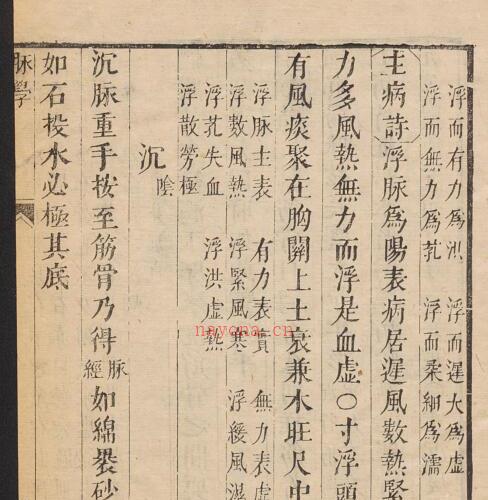 浮而有力為洪　浮而遲大為虛
浮而無力為芤　浮而柔細為濡
主病詩浮脉為陽表病居遲風數熱緊
力多風熱無力而浮是血虛〇寸浮頭
有風痰聚在胸關上土衰兼木旺尺中
浮脉主表　有力表實　無力表虛
浮數風熱　浮緊風寒　浮緩風濕
浮芤失血　浮洪虛熱
浮散勞極
沉陰
沉脉重手按至筋骨乃得脉經如綿裹砂
如石投水必極其底
脉學
nayona.cn